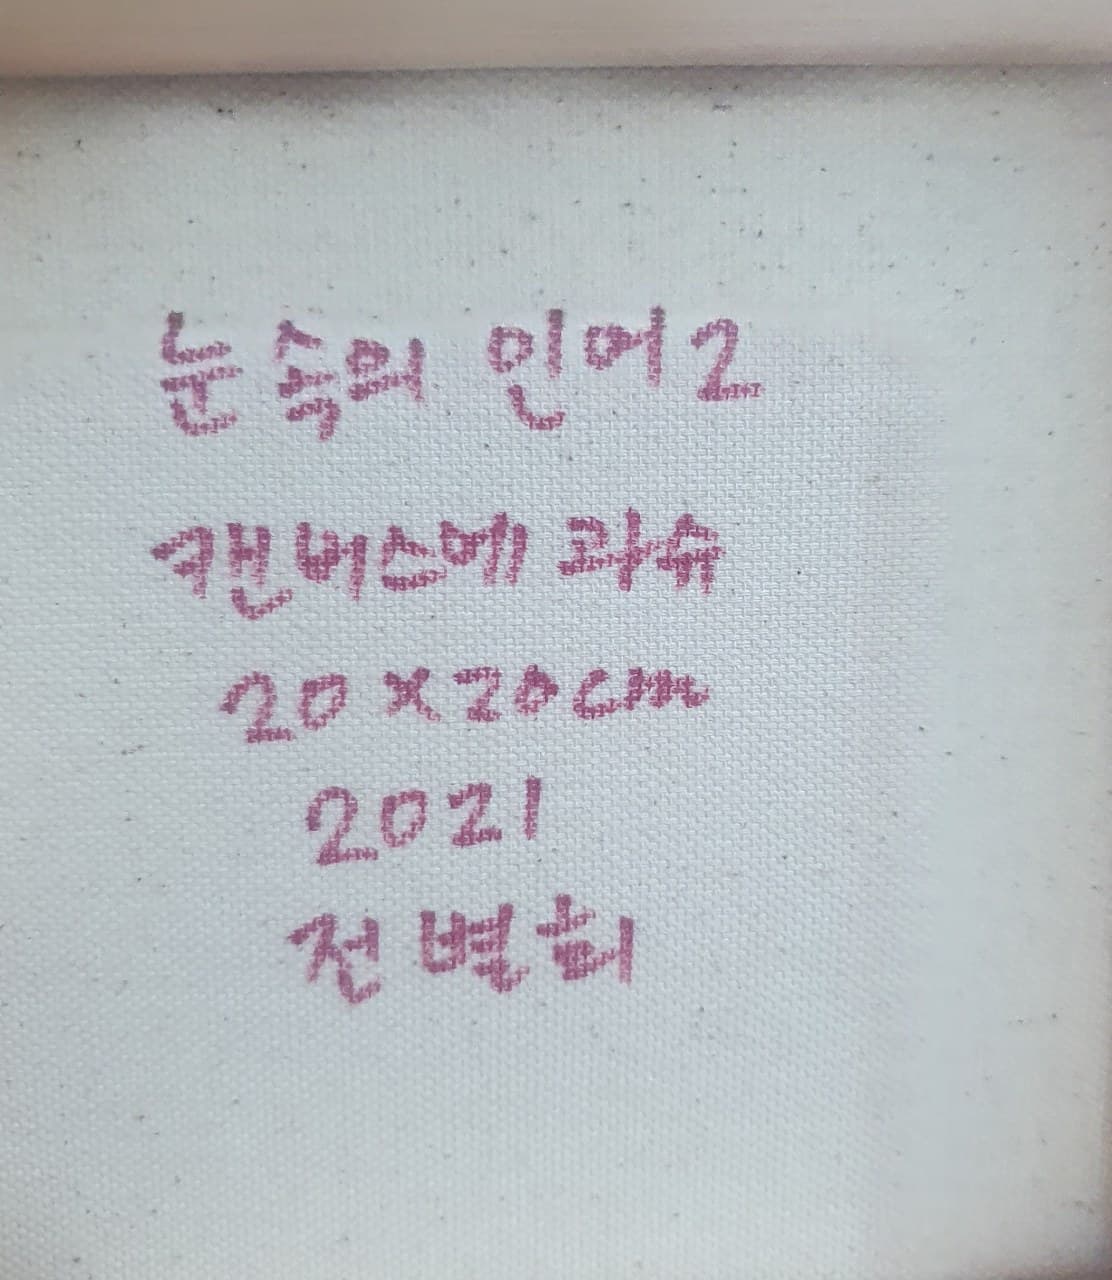 눈속의 인어2
캔버스에 과슈
20 x 20cm
2021
전별희